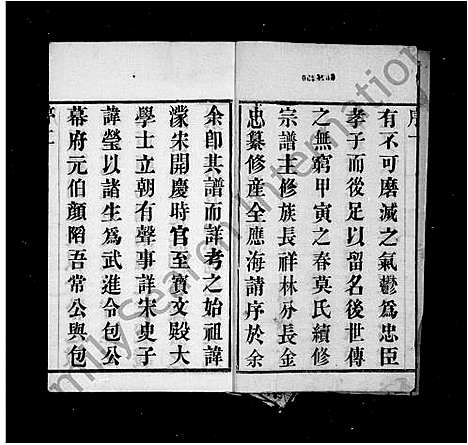 序一
有不可磨滅之氣鬱爲忠臣
孝子而後足以留名後世傳
之無窮甲寅之春莫氏續修
宗譜主修族長祥林分長金
忠纂修産全應海請序於余
余卽其譜而詳考之始祖諱
濛宋開慶時官至寶文殿大
學士立朝有聲事詳宋史子
諱瑩以諸生爲武進令包公
幕府元伯顏陷吾常公與包
序二
FamilySearch International